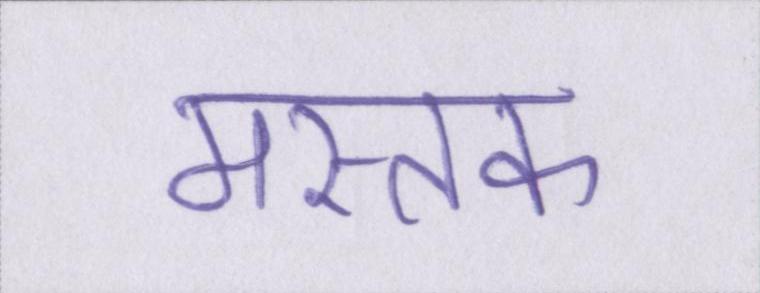 मस्तक